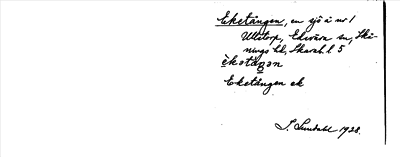 Eketången, en sjö å nr 1
Ullstorp, Edsvära sn, Ski-
nings hd, Skarab. l 5
èkotåŋən
Eketången ek
S. Sundahl 1928.